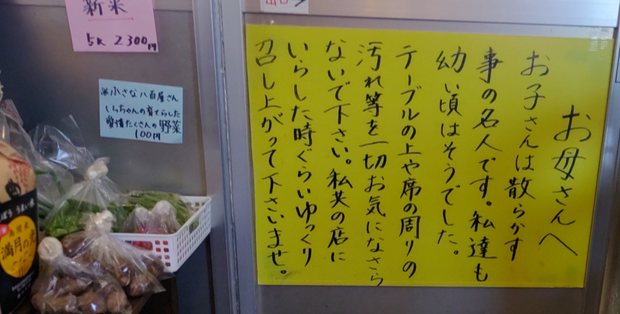 お母さんへ
お子さんは散らかす
事の名人です。私達も
幼い頃はそうでした。
テーブルの上や席の周りの
汚れ等を一切お気になさら
ないで下さい。私共の店に
いらした時ぐらいゆっくり
召し上がって下さいませ。
新米
5K 2300円
※小さな八百屋さん
しっちゃんの育てらした
愛情たくさんの野菜
100円
満月の